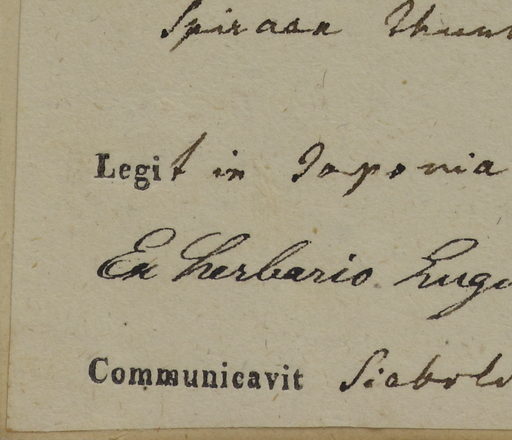 Spiraea Thun
Legit in Japonia
Ex herbario Lugd
Communicavit Siebold